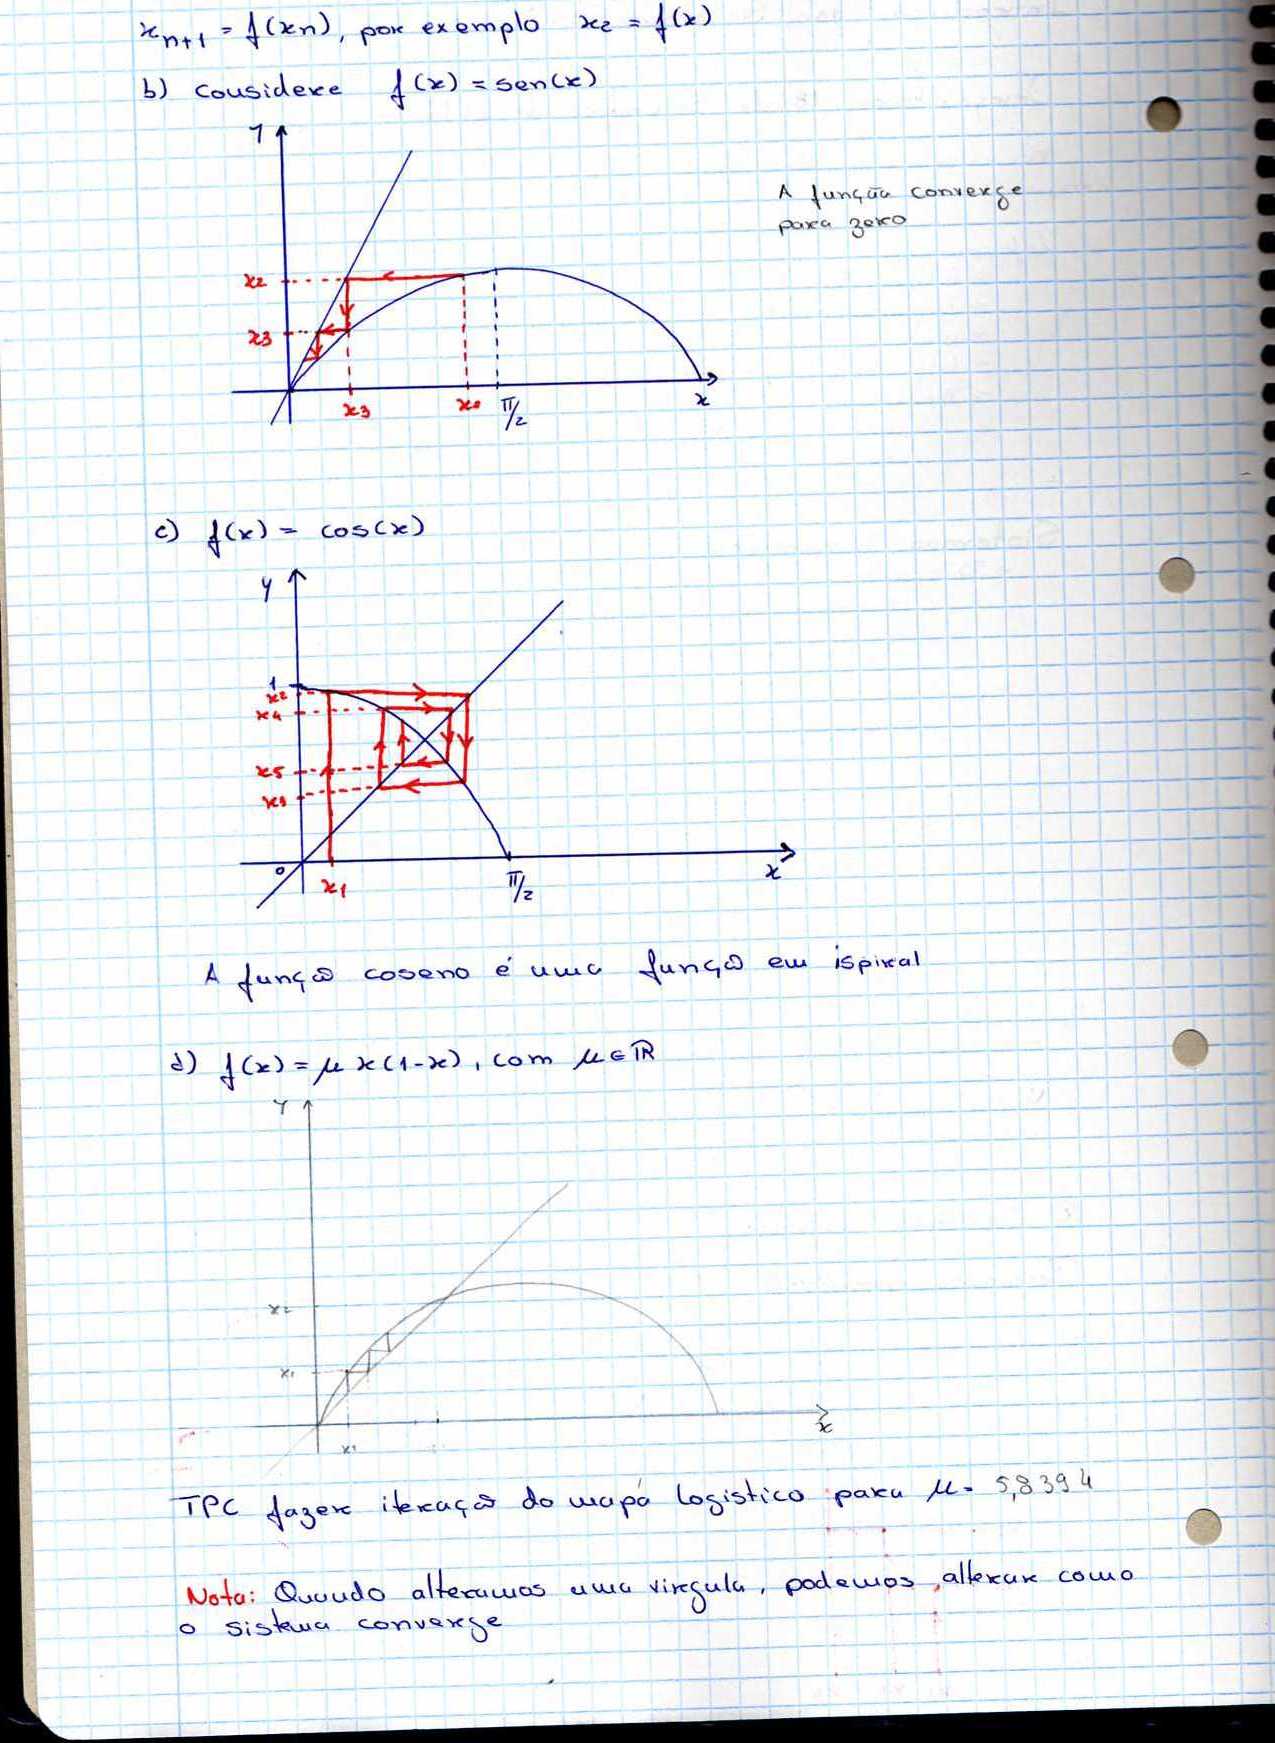 x_{n+1} = f(xn), por exemplo x2 = f(x)
b) considere f(x) = sen(x)
y
A função converge
para zero
x2
x3
x3
x0
π/2
x
c) f(x) = cos(x)
y
1
x2
x4
x5
x3
0
x1
π/2
x
A função coseno é uma função em ispiral
d) f(x) = μ x(1-x), com μ ∈ ℝ
y
x2
x1
x1
x
TPC fazer iteração do mapa logistico para μ = 5,8394
Nota: Quando alteramos uma virgula, podemos alterar como
o sistema converge